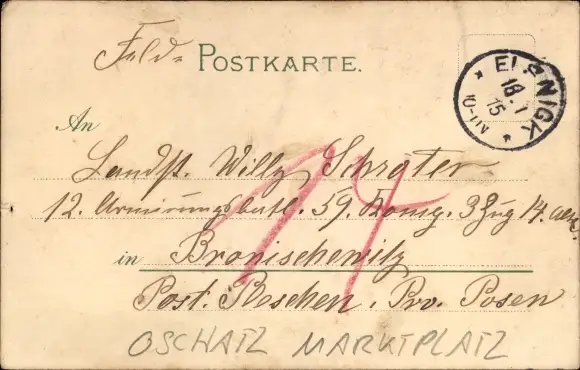 Feld- POSTKARTE.
ELSNIGK
18.1
15
10-11V
An
Landst. Willy Schröter
12. Armierungsbatl. 59. Komp. 3 Zug 14.
in Bronischewitz
Post. Pleschen. Prv. Posen
14
OSCHATZ MARKTPLATZ